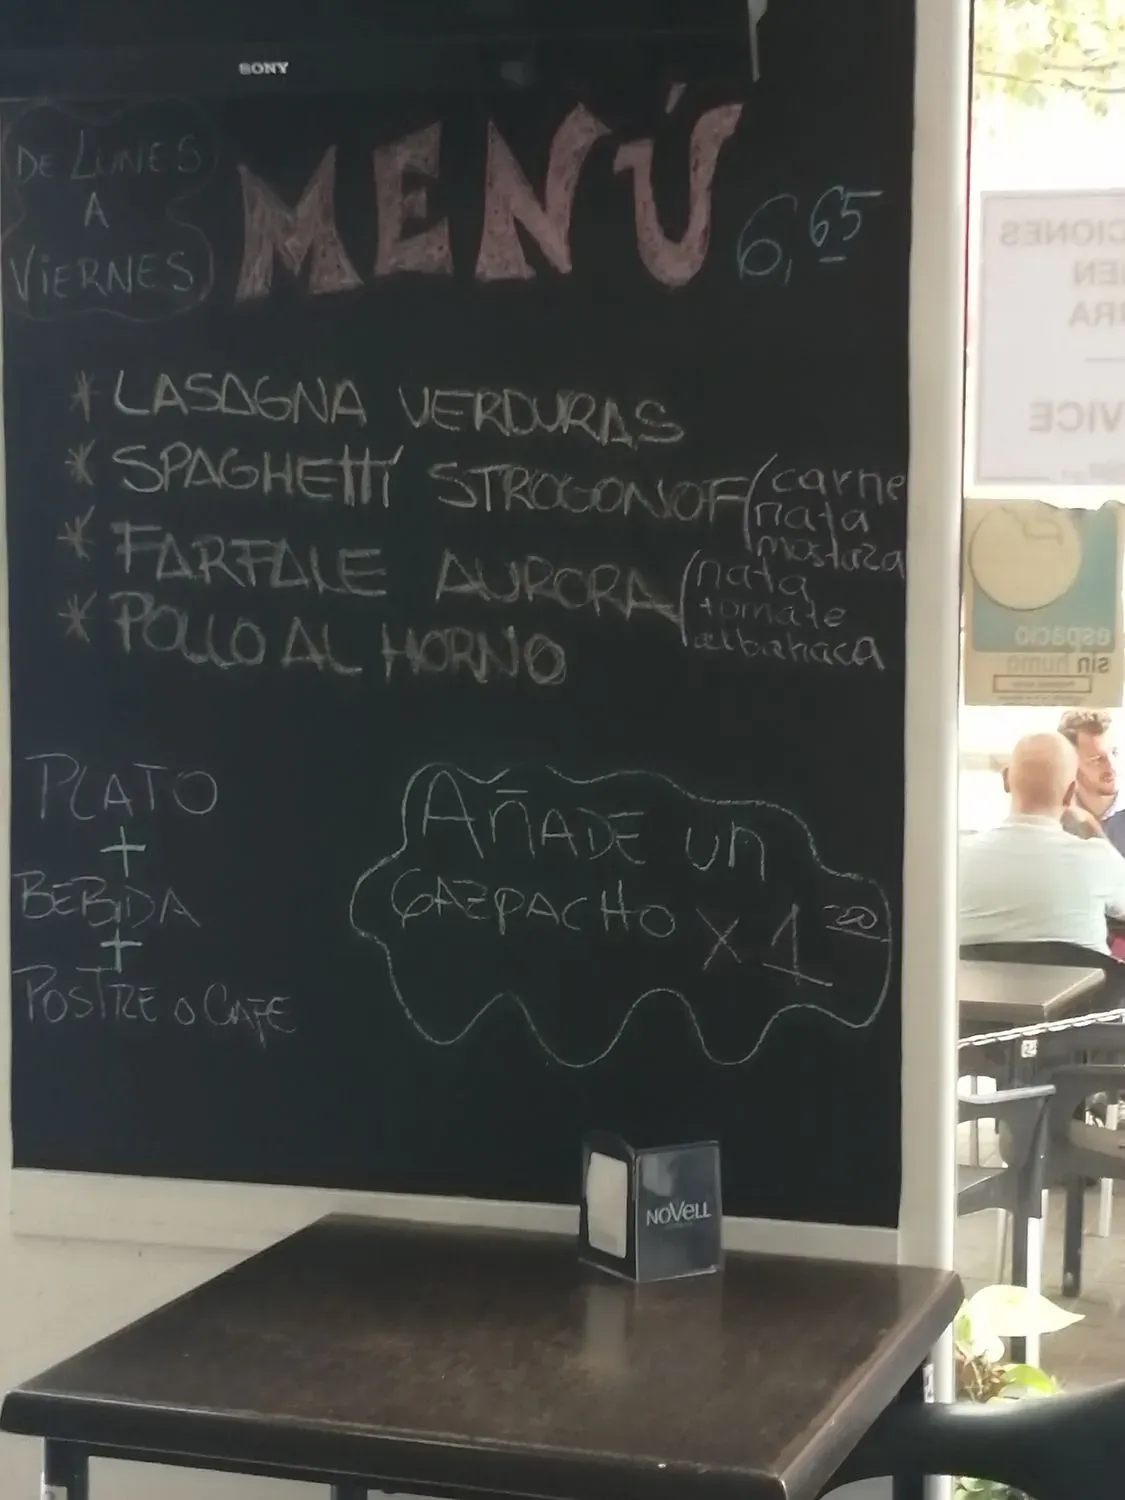 SONY
DE LUNES
A
VIERNES
MENÚ
6,65
* LASAGNA VERDURAS
* SPAGHETTI STROGONOF (carne
nata
mostaza
* FARFALE AURORA (nata
tomate
albahaca
* POLLO AL HORNO
PLATO
+
BEBIDA
+
POSTRE O CAFE
AÑADE UN
GAZPACHO X 1 20
NOVELL
CIONES
VICE
espacio
sin humo